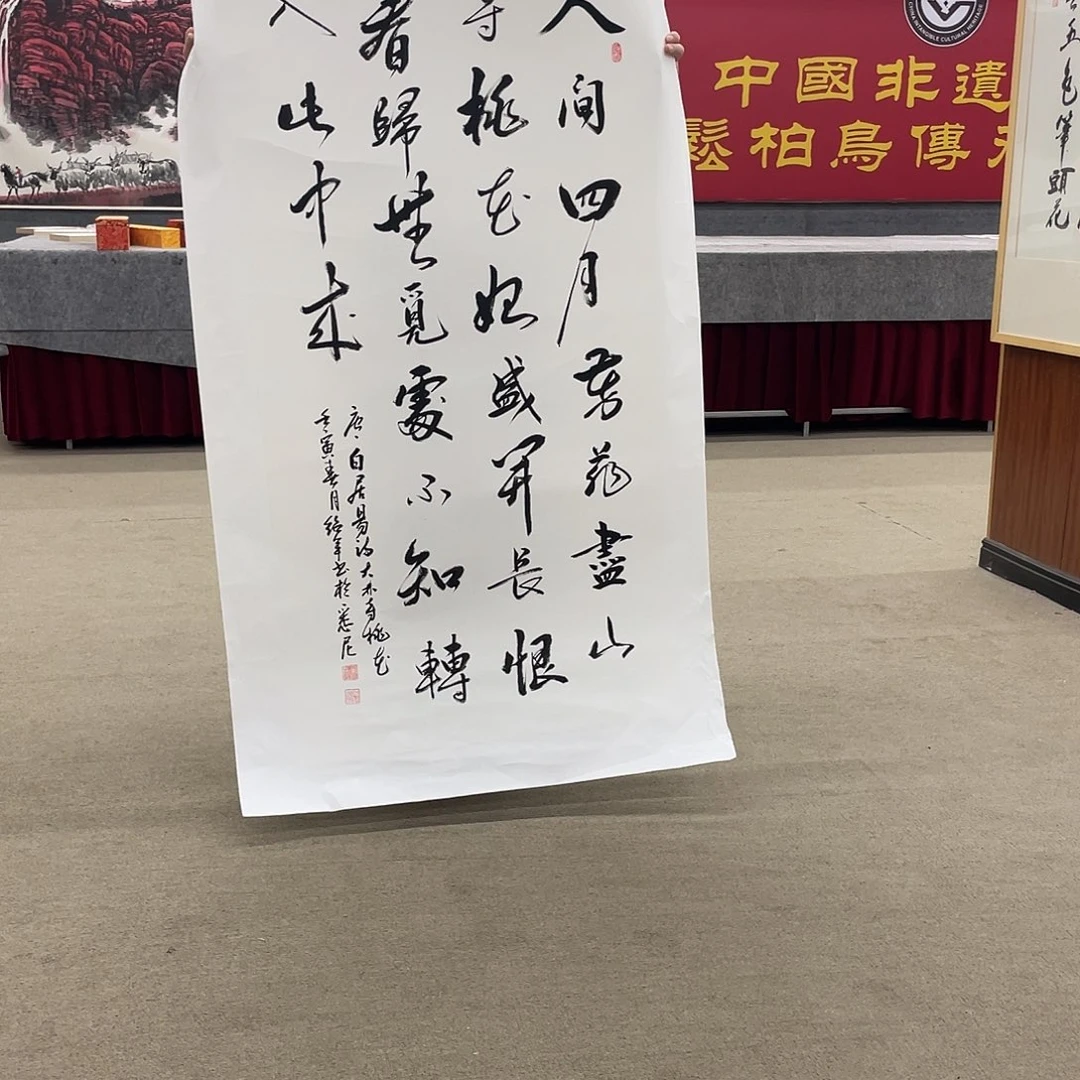 人間四月芳菲盡山
寺桃花始盛開長恨
春歸無覓處不知轉
入此中來
唐·白居易詩大林寺桃花
壬寅春月書於悉尼
CHINA INTANGIBLE CULTURAL HERITAGE
中國非遺
鬆柏鳥傳
五色筆頭花